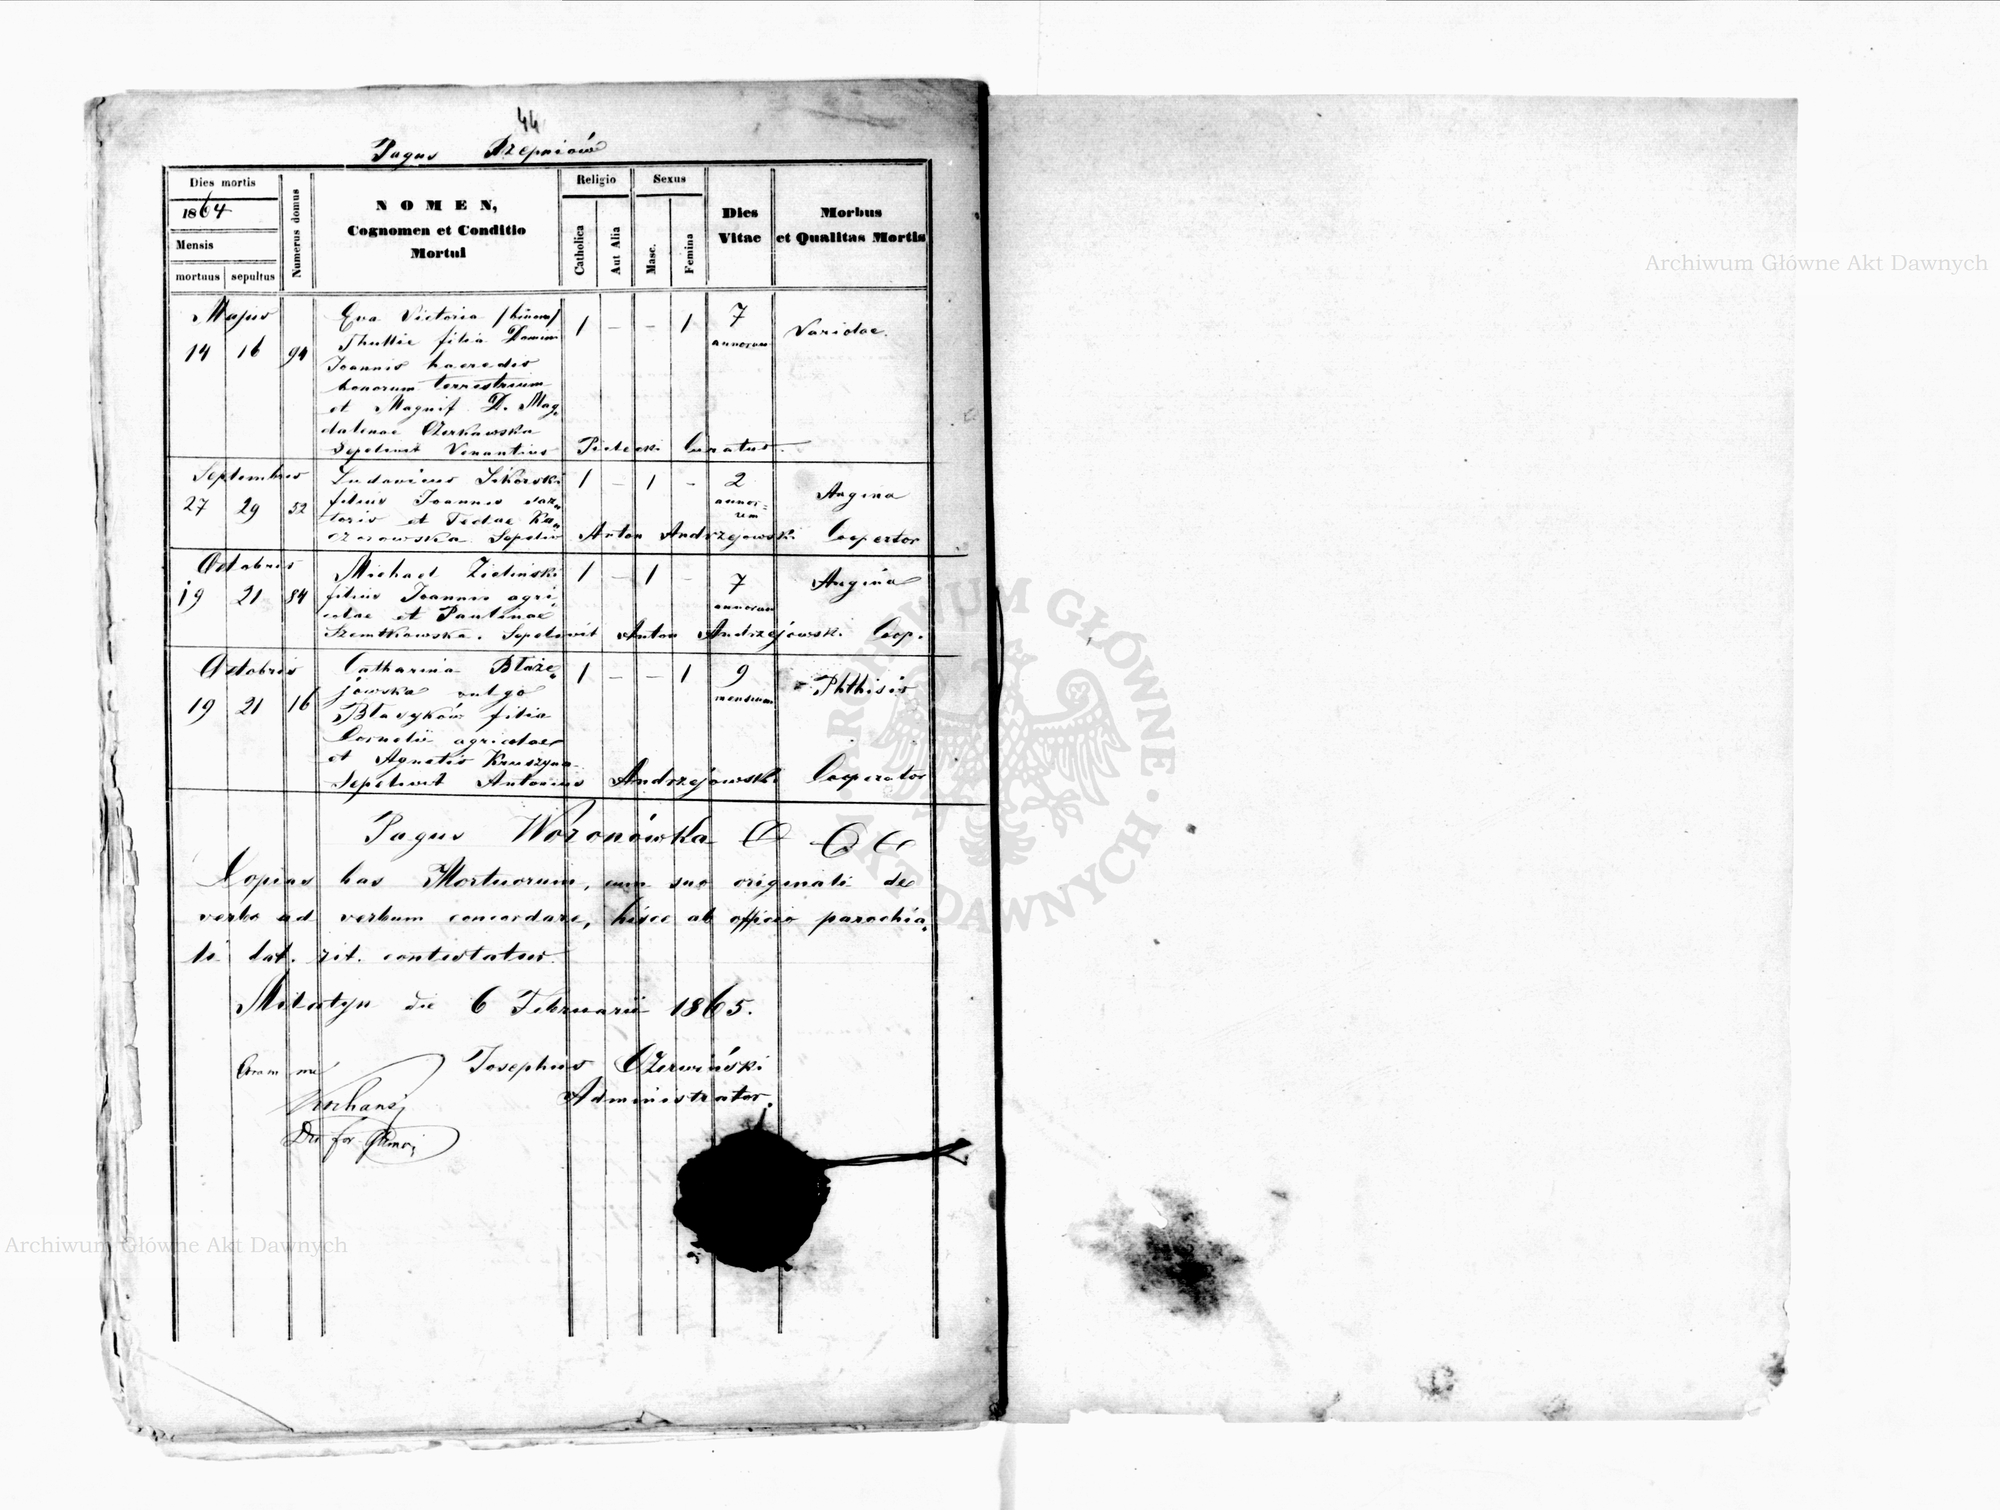 44
Pagus Rzepniów
Dies mortis
1864
Mensis
mortuus sepultus
Numerus domus
NOMEN,
Cognomen et Conditio
Mortui
Religio
Catholica
Aut Alia
Sexus
Masc.
Femina
Dies
Vitae
Morbus
et Qualitas Mortis
Majus
14 16 94
Eva Victoria /binom/
Thullie filia Domini
Joannis haeredis
bonorum terrestrium
et Magnif. D. Mag-
dalenae Czerkawska
Sepelivit Venantius Curatus.
1 – – 1
7
annorum
Variolae.
Septembris
27 29 52
Ludovicus Sikorski
filius Joannis
et Teclae
Sepeliv Anton Andrzejowski Cooperator
1 – 1 –
2
annor=
um
Angina
Octobris
19 21 84
Michael Zieliński
filius Joannis agri-
colae et Paulinae
Sepelivit Anton Andrzejowski Coop.
1 – 1 –
7
annorum
Angina
Octobris
19 21 16
Catharina Błaże-
jowska vulgo
Błazyków filia
Cornelii agricolae
et Agnetis Kruszyna
Sepelivit Antonius Andrzejowski Cooperator
1 – – 1
9
mensium
Phthisis
Pagus Woronówka
Copias has Mortuorum, cum suo originali de
verbo ad verbum concordare, hisce ab officio parochia-
li lat. rit. contestatur.
Milatyn die 6 Februarii 1865.
Coram me
Josephus Czerwiński
Administrator.
Archiwum Główne Akt Dawnych
Archiwum Główne Akt Dawnych
ARCHIWUM GŁÓWNE
AKT DAWNYCH